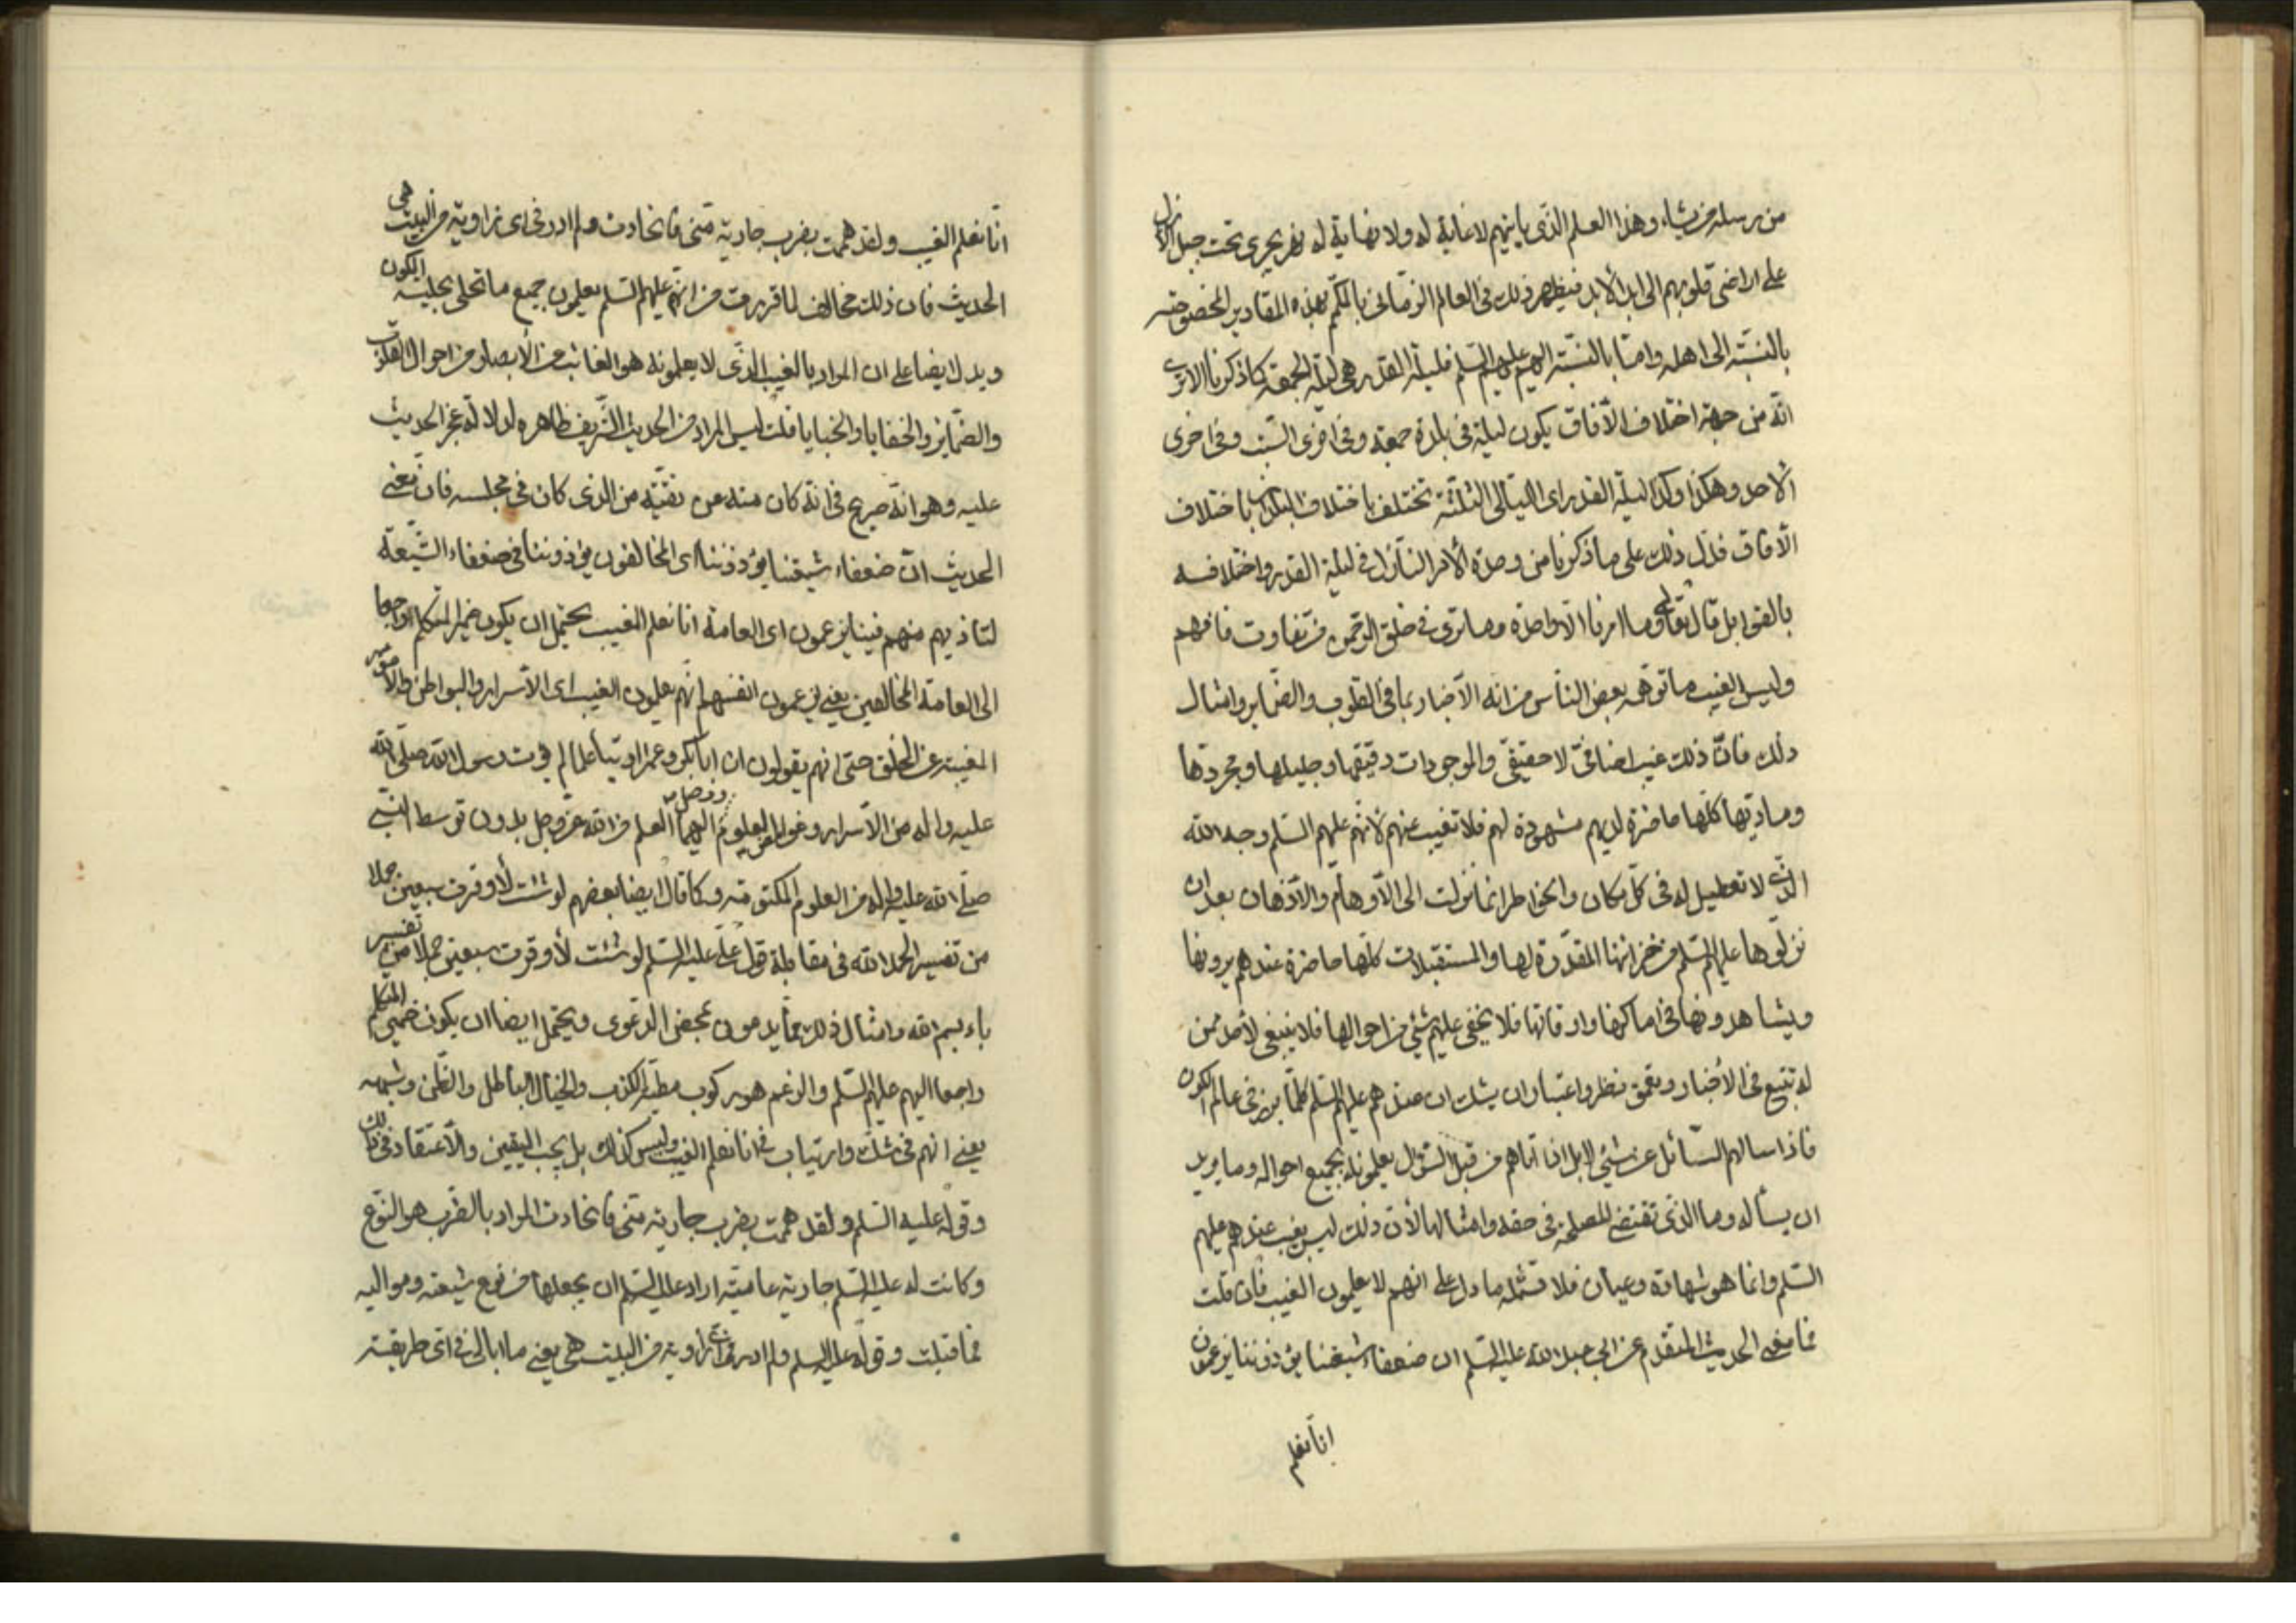 من رسله من يشاء وهذا العلم الذى ياتيهم لا غاية له ولا نهاية له نهر يجرى تحت جبل الأزل
على اراضى قلوبهم الى ابد الأبد فيظهر ذلك فى العالم الزمانى بالكم بهذه المقادير المخصوصة
بالنسبة الى اهله وامّا بالنسبة اليهم عليهم السّلم فليلة القدر هى ليلة الجمعة كما ذكرنا الا ترى
انّه من جهة اختلاف الآفاق يكون ليلة فى بلدة جمعة وفى اخرى السّبت وفى اخرى
الأحد وهكذا وكذا ليلة القدر اى الليالى الثلثة تختلف باختلاف البلدان باختلاف
الآفاق فدلّ ذلك على ما ذكرنا من وحدة الأمر النّازل فى ليلة القدر واختلافه
بالقوابل قال تعالى وما امرنا الّا واحدة وما ترى فى خلق الرّحمن من تفاوت فافهم
وليس الغيب ما توهّمه بعض النّاس من انّه الأخبار بما فى القلوب والضّماير وامثال
ذلك فانّ ذلك غيب اضافىّ لا حقيقىّ والموجودات دقيقها وجليلها ومجرّدها
ومادّيها كلّها حاضرة لديهم مشهودة لهم فلا تغيب عنهم لأنّهم عليهم السّلم وجه الله
الّذى لا تعطيل له فى كلّ مكان والخواطر انّما نزلت الى الأوهام والأذهان بعد ان
نزّلوها عليهم السّلم من خزائنها المقدّرة لها والمستقبلات كلّها حاضرة عندهم يرونها
ويشاهدونها فى اماكنها واوقاتها فلا يخفى عليهم شئ من احوالها فلا ينبغى لأحد ممّن
له تتبّع فى الأخبار وتعمّق نظر واعتبار ان يشك ان عندهم عليهم السّلم كلّما برز فى عالم الكون
فاذا سالهم السّائل عن شئ لا بل اذا اتاهم من قبل السّؤال يعلمونه بجميع احواله وما يريد
ان يسأله وما الذى تقتضى المصلحة فى حقه وامثالها لأنّ ذلك ليس بغيب عندهم عليهم
السّلم وانّما هو شهادة وعيان فلا تشمله ما دل على انهم لا يعلمون الغيب فان قلت
فما معنى الحديث المتقدّم عن ابى عبد الله عليه السّلم ان ضعفاء شيعتنا يؤذوننا يزعمون
انّا نعلم
انّا نعلم الغيب ولقد هممت بضرب جارية منّى فانحازت ولم ادر فى اى زاوية من البيت هى
الحديث فان ذلك مخالف لما قررت من انّهم عليهم السّلم يعلمون جميع ما تحلى بحلية الكون
ويدل ايضا على ان المراد بالغيب الذى لا يعلمونه هو الغائب من الأبصار من احوال القلوب
والضّماير والخفايا والخبايا قلت ليس المراد من الحديث الشّريف ظاهره لدلالة عجز الحديث
عليه وهو انّه صريح فى انّه كان منه عن تقيّة من الذى كان فى مجلسه فانّ معنى
الحديث انّ ضعفاء شيعتنا يؤذوننا اى المخالفون يؤذوننا فى ضعفاء الشّيعة
لتاذيهم منهم فينا يزعمون اى العامة انا نعلم الغيب يحتمل ان يكون ضمير المتكلم راجعا
الى العامّة المخالفين يعنى يزعمون انفسهم انّهم يعلمون الغيب اى الأسرار والبواطن والأمور
المغيبة عن الخلق حتى انهم يقولون ان ابا بكر وعمر اوتيا علما لم يؤت رسول الله صلّى الله
عليه واله من الأسرار وغوامض العلوم ووصل اليهما العلم من الله عزّ وجل بدون توسط النّبى
صلّى الله عليه واله من العلوم المكتومة وكما قال ايضا بعضهم لو شئت لأوقرت سبعين حملا
من تفسير الحمد لله فى مقابلة قول علىّ عليه السّلم لو شئت لأوقرت سبعين حملا من تفسير
باء بسم الله وامثال ذلك ممّا يدعون بمحض الدعوى ويحتمل ايضا ان يكون ضمير المتكلم
راجعا اليهم عليهم السّلم والزعم هو ركوب مطيّة الكذب والخيال الباطل والظّن وشبهه
يعنى انهم فى شك وارتياب فى انا نعلم الغيب وليس كذلك بل يجب اليقين والأعتقاد فى ذلك
وقوله عليه السّلم ولقد هممت بضرب جارية منّى فانحازت المراد بالضّرب هو النّوع
وكانت له عليه السّلم جارية عاميّة اراد عليه السّلم ان يجعلها من نوع شيعته ومواليه
فما قبلت وقوله عليه السلم ولم ادر فى اى زاوية من البيت هى يعنى ما ابالى فى اى طريقة